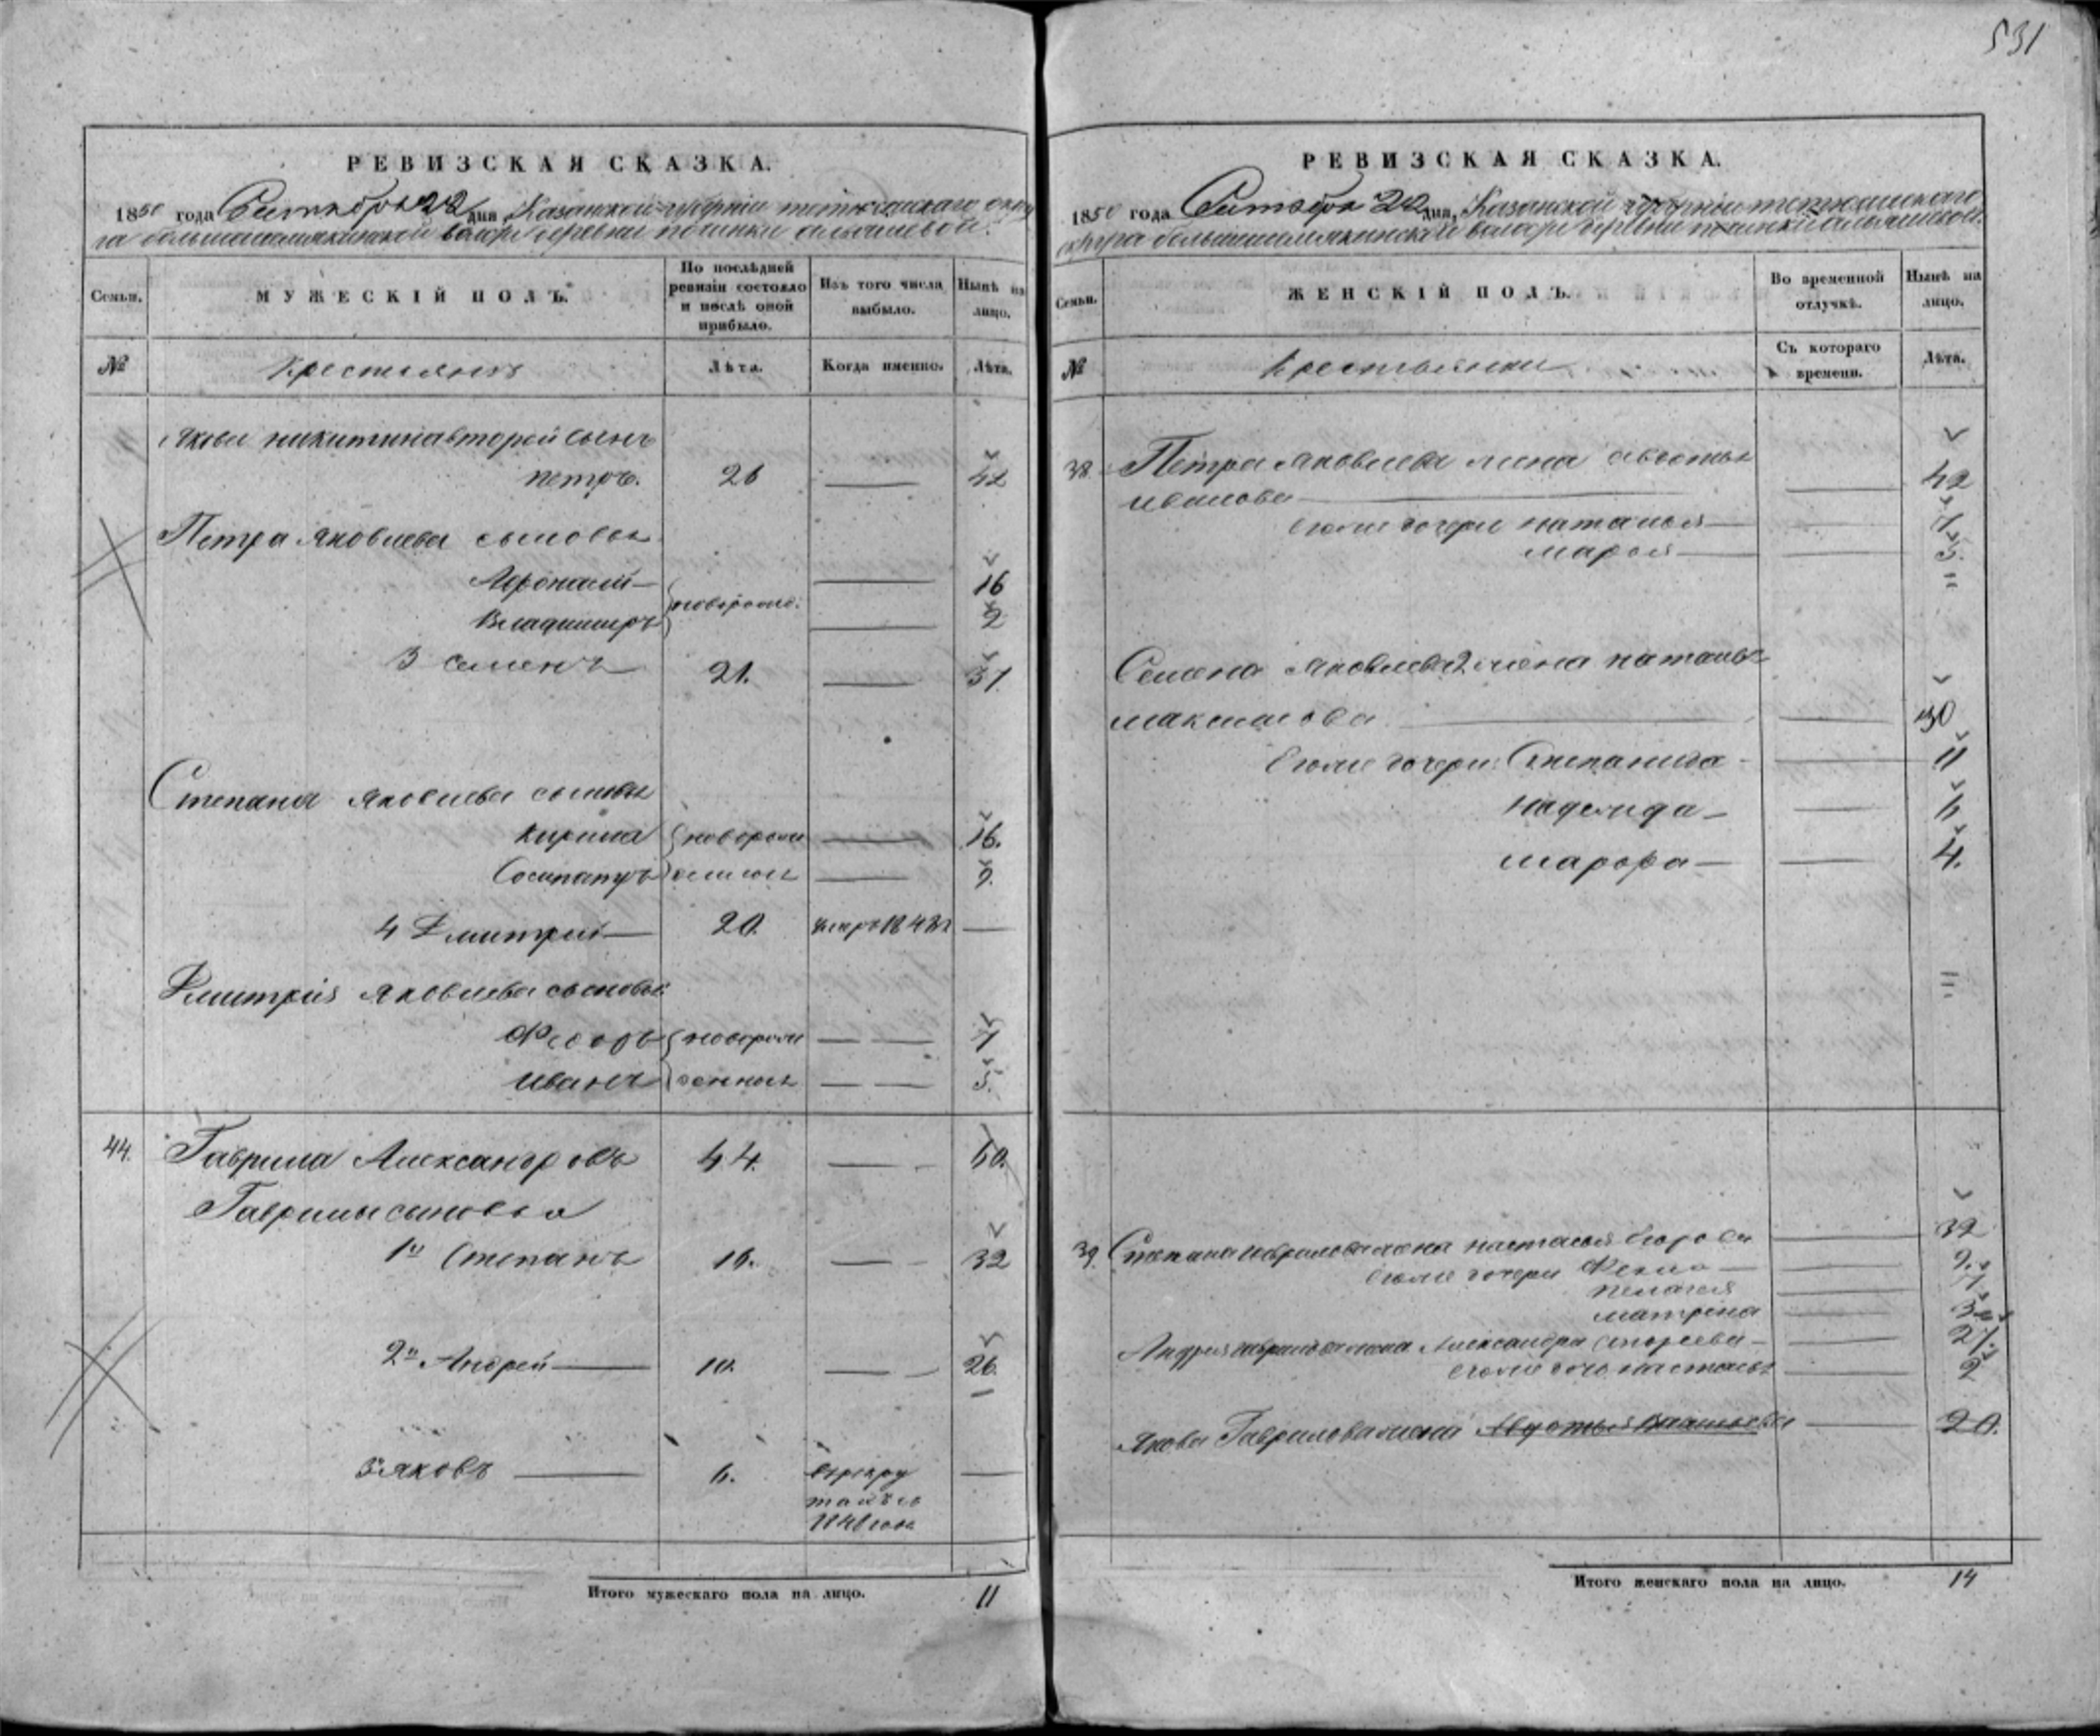 531
РЕВИЗСКАЯ СКАЗКА.
1850 года Сентября 22 дня, Казанской губернии тетюшскаго окру
га большешемякинской волости деревни починки
Семьи.
МУЖЕСКІЙ ПОЛЪ.
По послѣдней ревизіи состояло и послѣ оной прибыло.
Изъ того числа выбыло.
Нынѣ на лицо.
№
Крестьянъ
Лѣта.
Когда именно.
Лѣта.
Якова никитина второй сынъ
петръ. 26 42
Петра Яковлева сыновья
Афонасій 16
Владимиръ 2
новорожд.
3 семенъ 21. 37
Степана Яковлева сыновья
Кирила новорож 16.
Сосипатръ денные 9.
4 Дмитрий 20. умеръ
Дмитрия Яковлева сыновья
Федоръ новорож 7
иванъ денные 5.
44. Гаврила Александровъ 44. 60.
Гаврилы сыновья
1й Степанъ 16. 32
2й Андрей 10. 26.
3й яковъ 6. в рекру
тахъ съ
года
Итого мужескаго пола на лицо. 11
РЕВИЗСКАЯ СКАЗКА.
1850 года Сентября 22 дня, Казанской губернии тетюшскаго
округа большешемякинской волости деревни починки
Семьи.
ЖЕНСКІЙ ПОЛЪ.
Во временной отлучкѣ.
Нынѣ на лицо.
№
Крестьянки
Съ котораго времени.
Лѣта.
38. Петра Яковлева жена авдотья 42
иванова
Ево же дочери наталья 7
марья 5.
Семена Яковлева 2 жена наталья
максимова 30
Ево же дочери: Степанида 11
надежда 6
марфа 4.
39. Степана гаврилова жена настасья Егорова 32
ево же дочери Фекла 9.
пелагея 7
матрена 3
Андрея гаврилова жена Александра Андреева 27.
ево же дочь настасья 2
Якова Гаврилова жена Авдотья 20.
Итого женскаго пола на лицо. 14